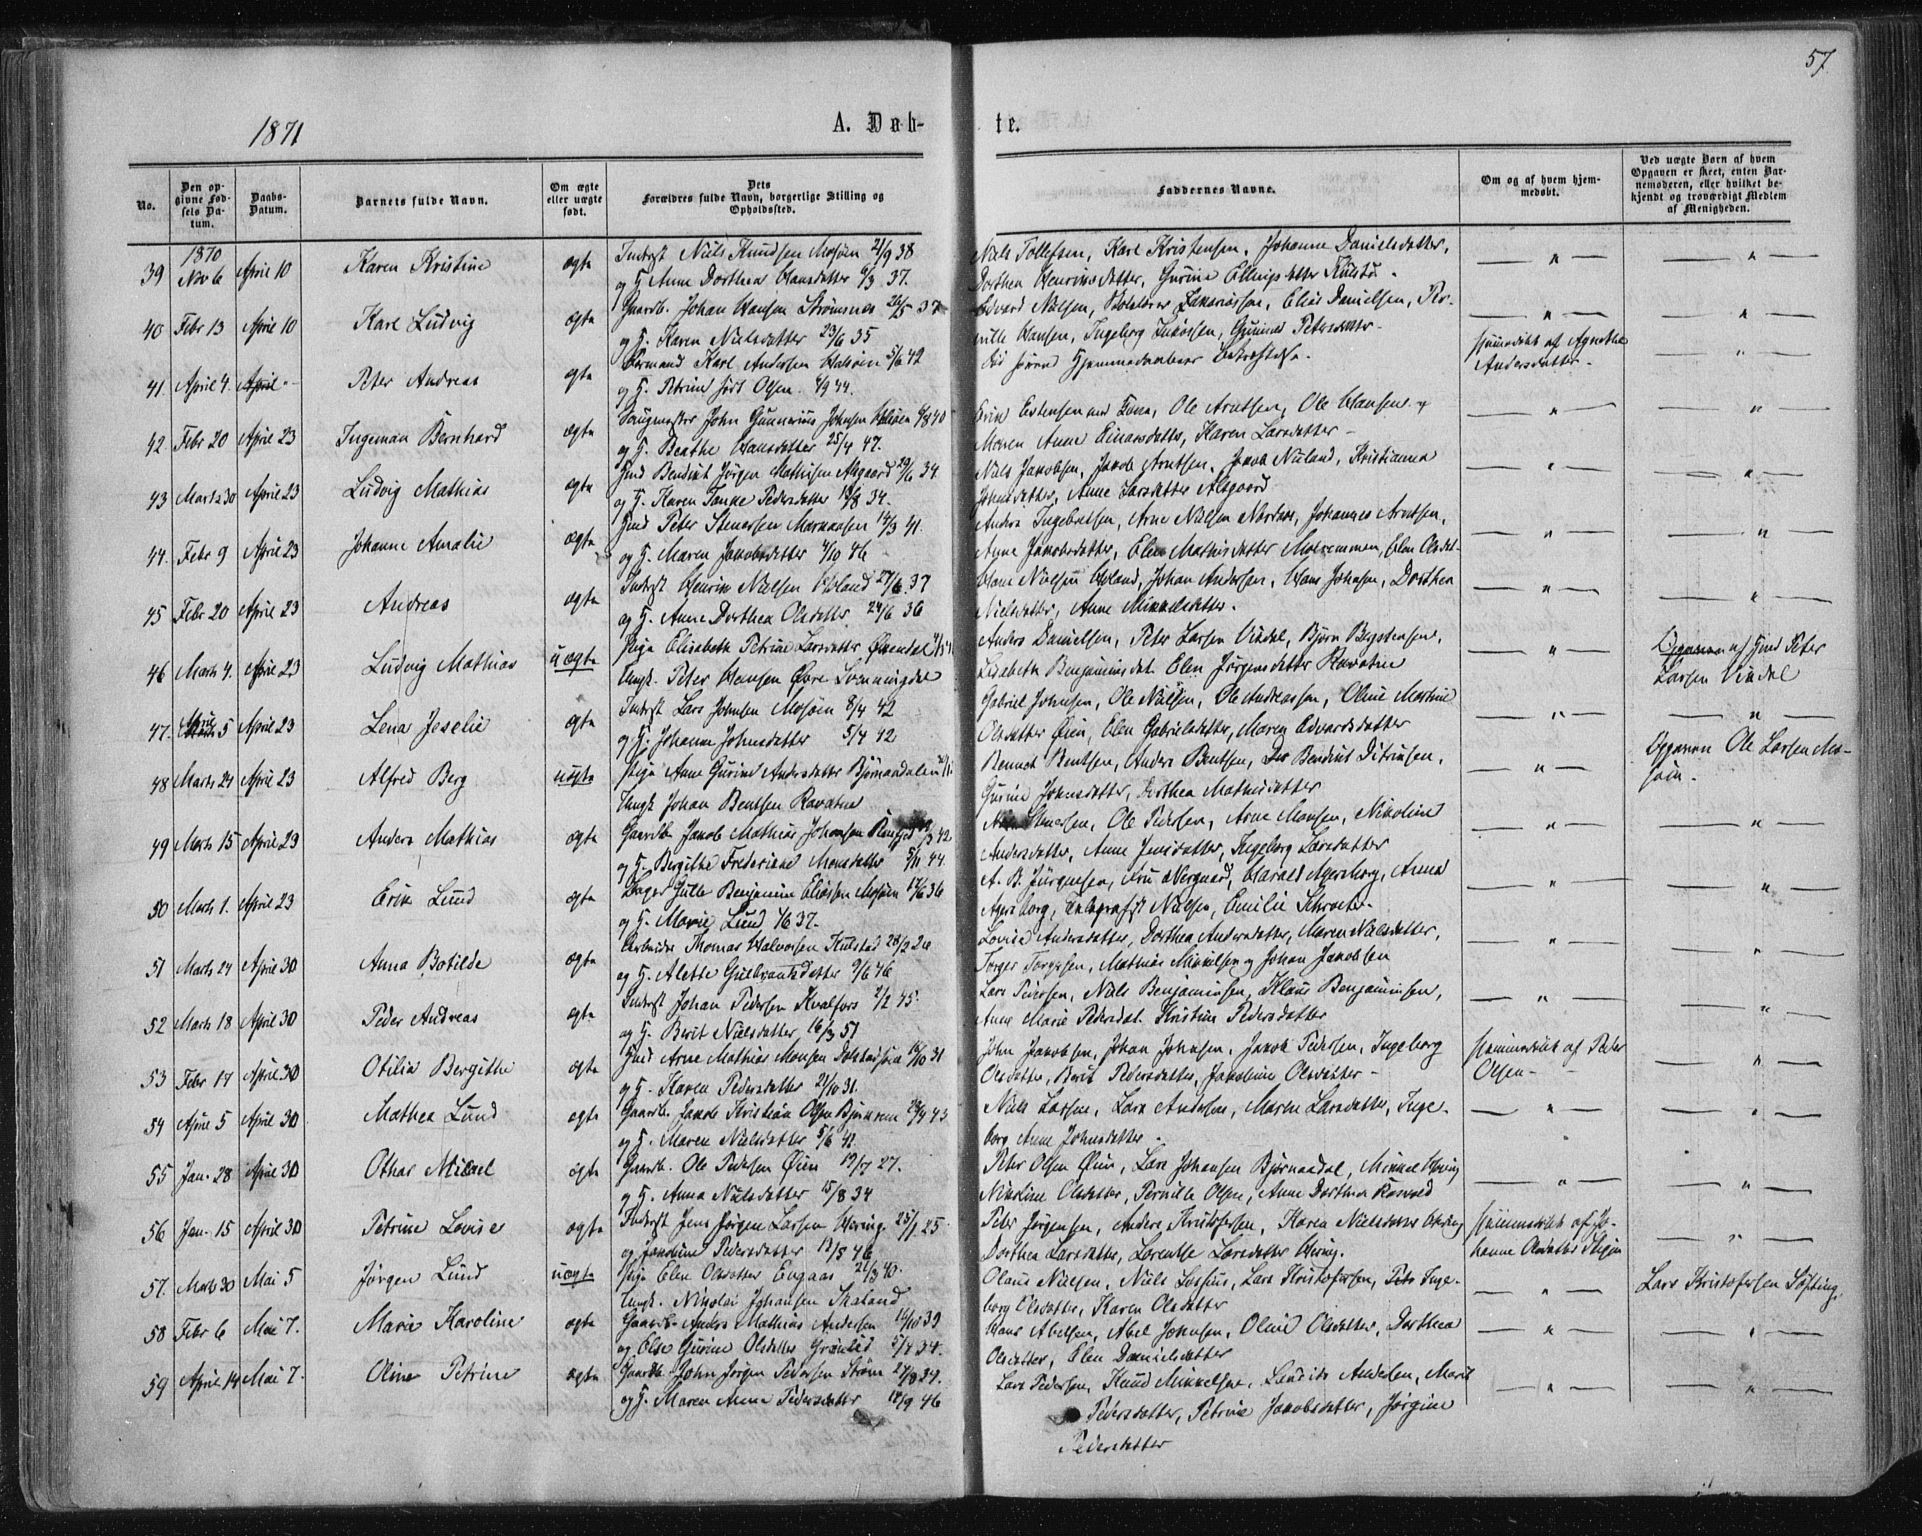 57.
1871
A. Døb-
te.
No.
Den op-
givne Fød-
sels Da-
tum.
Daabs-
Datum.
Barnets fulde Navn.
Om ægte
eller uægte
født.
Dets
Forældres fulde Navn, borgerlige Stilling og
Opholdssted.
Faddernes Navne.
Om og af hvem hjem-
medøbt.
Ved uægte Børn af hvem
Opgaven er skeet, enten Bar-
nemoderen, eller hvilket be-
kjendt og troværdigt Medlem
af Menigheden.
1870
39 Nov 6 April 10 Karen Kristine ægte Inderst Niels Knudsen Mosjøen 21/9 38
og H. Anne Dorthea Hansdatter 6/3 37.
Niels Tollefsen, Karl Kristensen, Johanne Danielsdatter,
Dorthea Henriksdatter, Gurine Ellingsdatter
40 Febr 13 April 10 Karl Ludvig ægte Gaardb. Johan Hansen Strømnes 26/5 37
og H. Karen Nielsdatter 23/6 35
Edvard Nielsen, Zakariassen, Elias Danielsen, Per-
nille Hansen, Ingeborg Gunild Petersdatter
41. April 4. April Peter Andreas ægte Karl Andersen Halsøen 5/6 42
og H. Petrine født Olsen 4/9 44.
Hjemmedøbt af Agnethe
Andersdatter
42 Febr 20 April 23 Ingeman Bernhard ægte Saugmester John Gunnerius Johnsen
og H. Beathe Hansdatter 25/4 47.
Erik Estensen Ole Arntsen, Ole Hansen
Maren Anne Einarsdatter, Karen Larsdatter
43 Marts 30 April 23 Ludvig Mathias ægte Ind Bendikt Jørgen Mathisen Alsgaard 29/6 34
og H. Karen Pedersdatter 18/8 34.
Niels Jakobsen, Jakob Arntsen, Jakob Nuland, Kristianna
Johnsdatter, Anne Larsdatter Alsgaard
44. Febr 9 April 23 Johanne Amalie ægte Ind Peter Stenersen 14/3 41.
og H. Maren Jakobsdatter 4/10 46
Anders Ingebretsen, Arne Nielsen Johannes Arntsen,
Anne Jakobsdatter, Elen Mathisdatter Elen Olsdat-
45 Febr 20 April 23 Andreas ægte Inderst Henrik Nielsen Høland 27/6 37
og H. Anne Dorthea Olsdatter 24/6 36
Hans Nielsen Høland, Johan Andersen, Hans Johnsen, Dorthea
Nielsdatter, Anne Mikkelsdatter.
46 Marts 4. April 23 Ludvig Mathias uægte Pige Elisabeth Petrine Larsdatter Øxendal
Ungk. Peter Hansen Øvre Svenningdal
Anders Danielsen, Peter Larsen Vindal, Bjørn Baystensen,
Lisabeth Benjaminsdat. Elen Jørgensdatter Ravatne
Opgaven af Ind Peter
Larsen Vindal
47. April 5 April 23 Lena Jeselie ægte Inderst Lars Johnsen Mosjøen 8/4 42
og H. Johanne Johnsdatter 5/4 42
Gabriel Johnsen, Ole Nielsen, Ole Andreassen, Oline Martine
Olsdatter Øien, Elen Gabrielsdatter, Maren Edvardsdatter
48 Marts 24 April 23 Alfred Berg uægte Pige Anne Gurine Andersdatter Bjørnaadalen
Ungk Johan Bentsen Ravatne
Rennet Bentsen, Anders Bentsen, Bendikt Ditriksen,
Gurine Johnsdatter, Dorthea Mathisdatter
Opgaven Ole Larsen Mo-
sjøen.
49 Marts 15 April 23 Anders Mathias ægte Gaardb Jakob Mathias Johansen 42.
og H. Bergithe Frederikke Monsdatter 5/11 44
Stenersen, Ole Pedersen, Arne Monsen, Nikoline
Andersdatter, Anne Jensdatter, Ingeborg Larsdatter
50 Marts 1. April 23 Erik Lund ægte Benjamin Eliassen Mosjøen 17/6 36
og H. Marie Lund 37.
A. B. Jürgensen, Fru Nergaard, Harald Agersborg, Anna
Agersborg, Telegrafist Nielsen, Emilie
51 Marts 24 April 30 Anna Botilde ægte Arbeider Thomas Halvorsen Kulstad 28/2 26
og H. Alette Gulbrantsdatter 9/6 46
Lovise Andersdatter, Dorthea Andersdatter, Maren Nielsdatter,
Torger Torgersen, Mathias Mikkelsen og Johan Jakobsen
52 Marts 18 April 30 Peder Andreas ægte Inderst Johan Pedersen Kvalfors 7/2 45.
og H. Berit Nielsdatter 16/3 51
Lars Niels Benjaminsen, Klaus Benjaminsen,
Anne Marie Pedersdat. Kristine Pedersdatter
53 Febr 17 April 30 Otilia Bergithe ægte Ind Arne Mathias Monsen 31
og H. Karen Pedersdatter 21/10 31.
John Jakobsen, Johan Johnsen, Jakob Pedersen, Ingeborg
Olsdatter, Berit Pedersdatter, Jakobine Olsdatter
Hjemmedøbt af Peter
Olsen
54 April 5 April 30 Mathea Lund ægte Gaardb. Jakob Kristian Olsen 43
og H. Maren Nielsdatter 5/6 42.
Niels Larsen, Lars Andersen, Maren Larsdatter, Inge-
borg Anne Johnsdatter
55 Jan. 28 April 30 Othar Mikael ægte Gaardb. Ole Pedersen Øien 19/7 27.
og H. Anna Nielsdatter 15/8 34
Peter Olsen Øien, Lars Johansen Bjørnaadal, Mikkel Hering
Nikoline Olsdatter, Pernille Olsen, Anne Dorthea
56 Jan. 15 April 30 Petrine Lovise ægte Inderst Jens Jørgen Larsen Hering 25
og Jakobine Pedersdatter 13/5 46
Peter Jørgensen, Anders Kristofersen, Karen Nielsdatter Hering
Dorthea Larsdatter, Lorentse Larsdatter Hering.
Hjemmedøbt af Jo-
hanne Olsdatter
57. Marts 30 Mai 5 Jørgen Lund uægte Pige Elen Olsdatter Engaas 21/3 40
Ungk. Nikolai Johansen Skaland
Olaus Nielsen, Niels Lars Kristofersen, Inge-
borg Olsdatter, Karen Olsdatter
Lars Kristofersen Søfting
58 Febr 6 Mai 7. Marie Karoline ægte Gaardb. Anders Mathias Andersen 39
og Else Gurine Olsdatter Grønlid 34.
Hans Abelsen, Abel Johnsen, Oline Olsdatter, Dorthea
Olsdatter, Elen Danielsdatter
59 April 14 Mai 7. Oline Petrine ægte Gaardb John Jørgen Pedersen Strøm 27/8 39.
og H. Maren Anna Pedersdatter 18/9 46
Lars Pedersen, Knud Mikkelsen, Andersen, Marit
Pedersdatter, Petrine Jakobsdatter, Jørgine
Pedersdatter